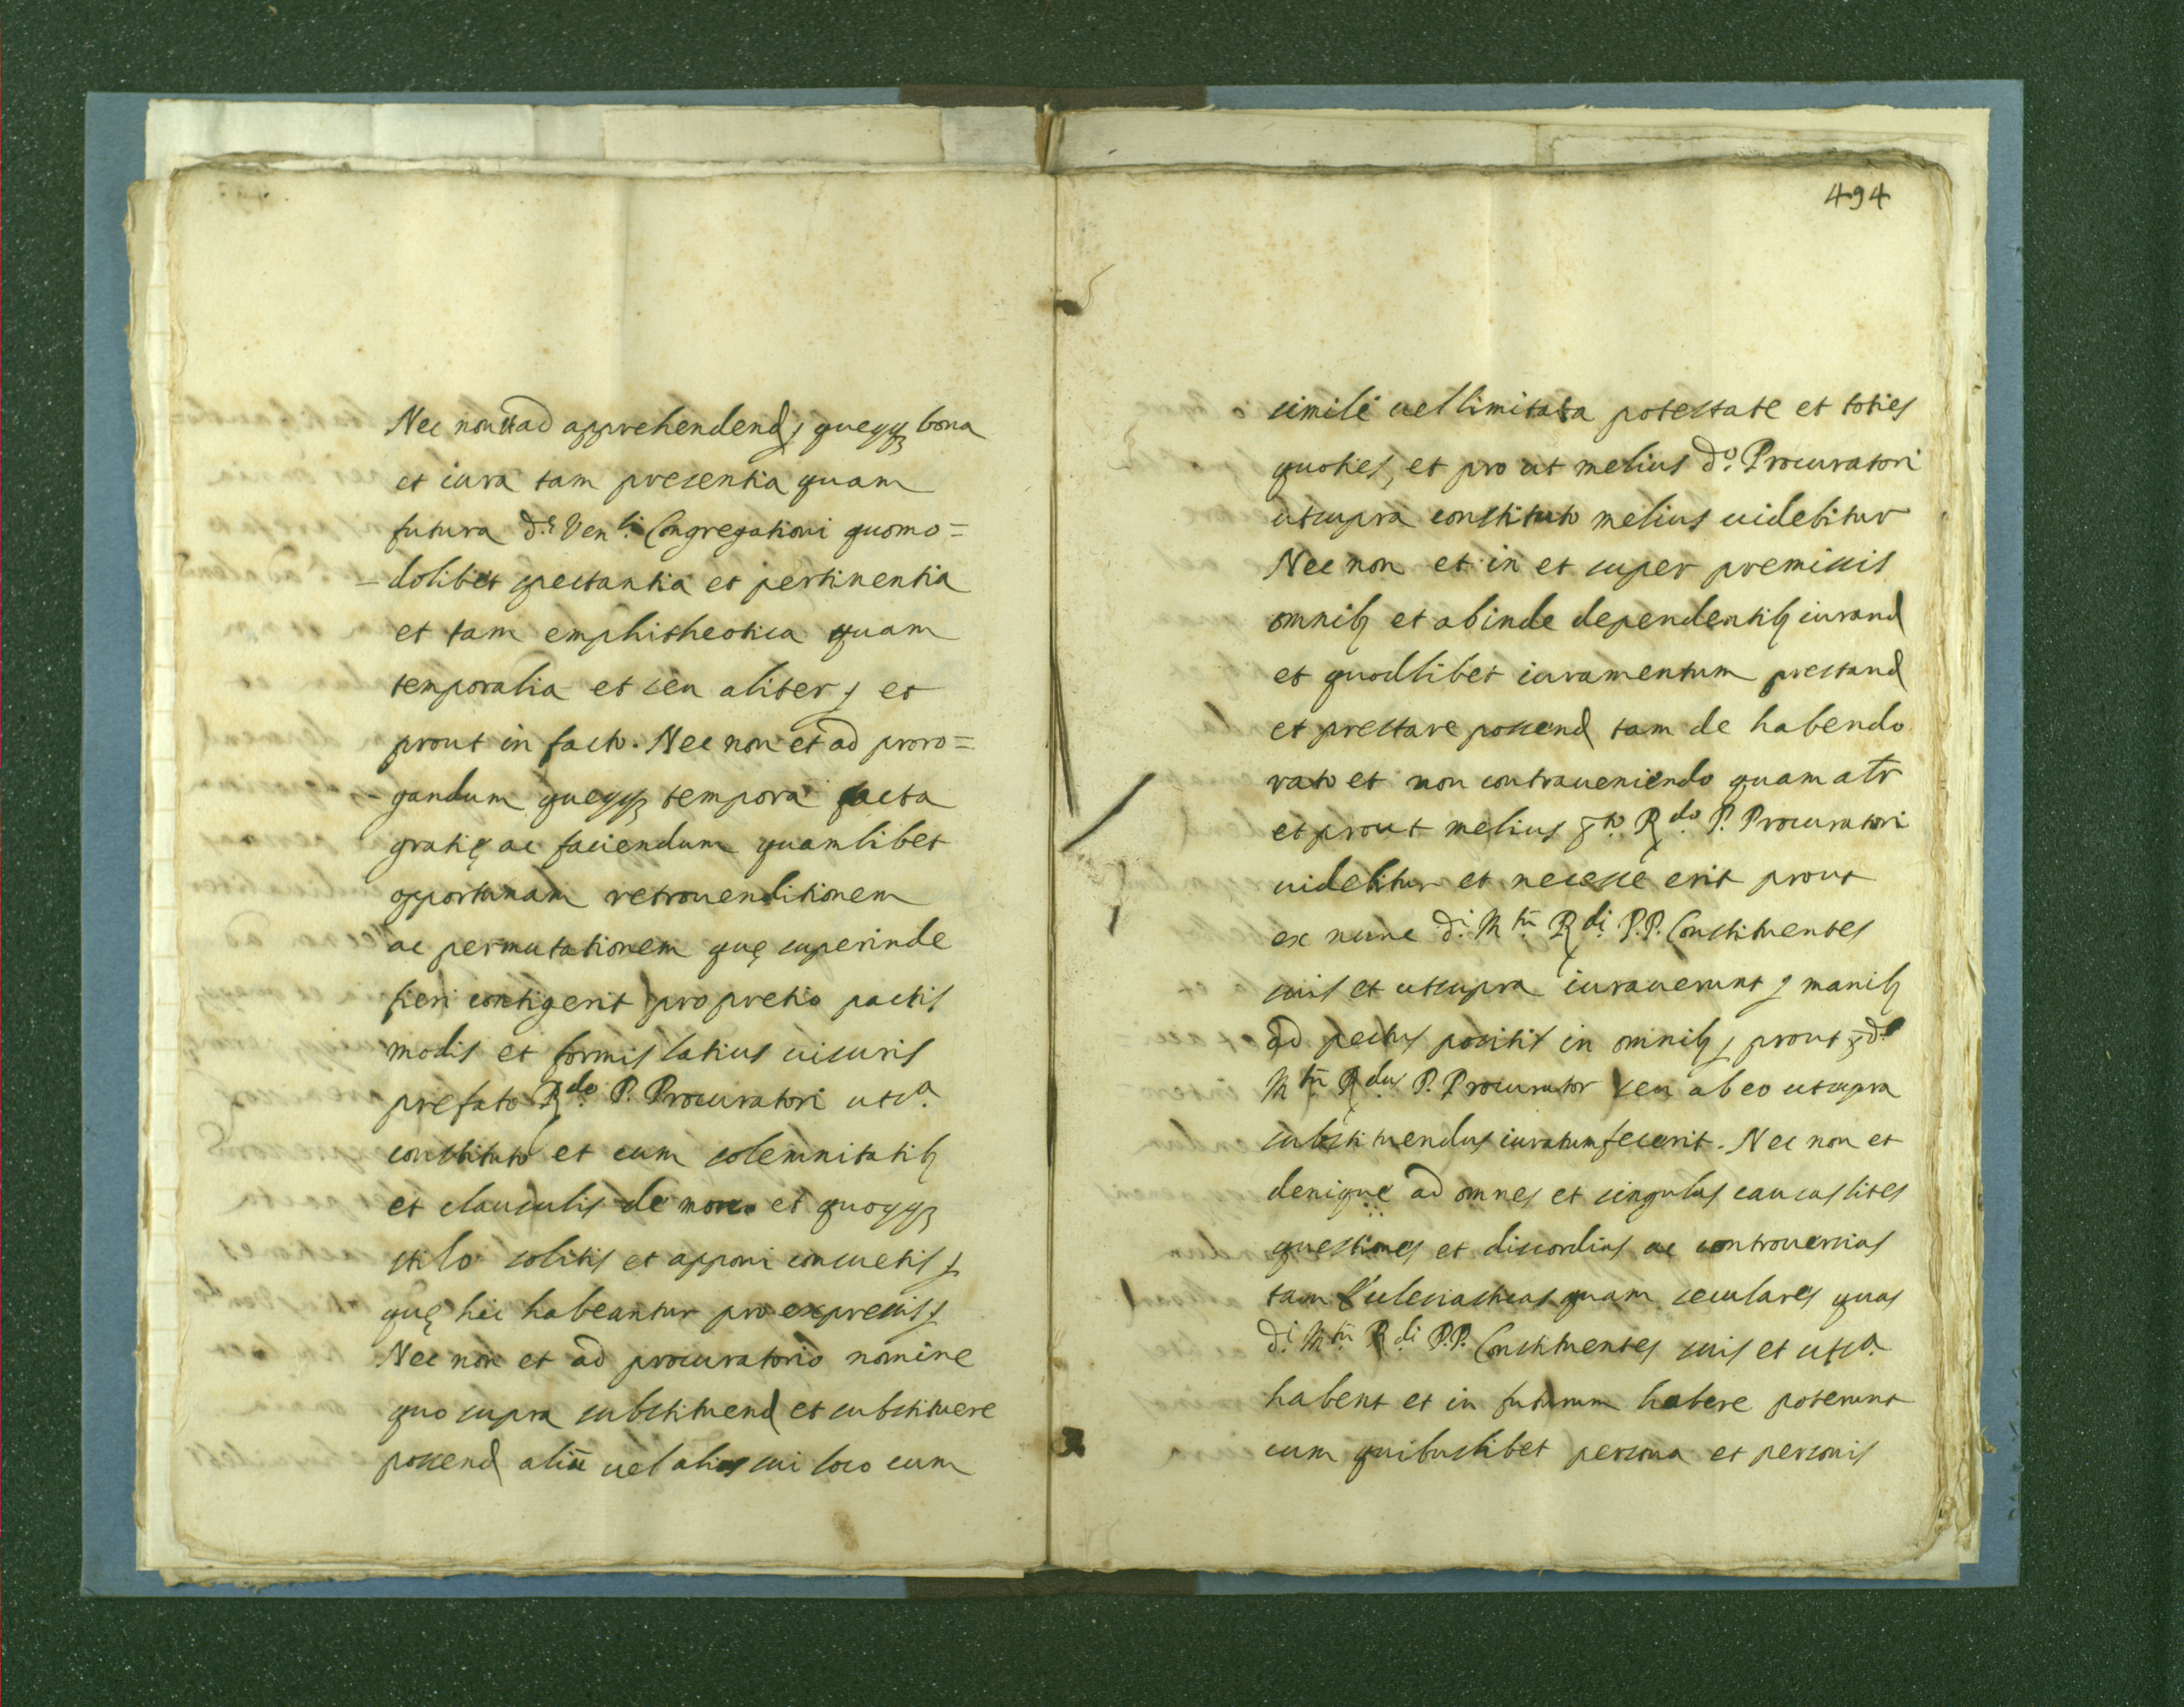 Nec non et ad apprehendend, queqq bona
et iura tam presentia quam
futura d.ę Ven.li Congregationi quomo=
-dolibet spectantia et pertinentia
et tam emphitheotica quam
temporalia et seu aliter, et
prout in facto. Nec non et ad proro=
-gandum queqq tempora facta
gratię ac faciendum quamlibet
opportunam retrouenditionem
ac permutationem quę superinde
fieri contigerit pro pretio pactis
modis et formis latius uisuris
prefato R.do P. Procuratori uts.a
constituto et cum solemnitatib
et clausulis de more et quoqq
stilo solitis et apponi consuetis,
quę hic habeantur pro expressis,
Nec non et ad procuratorio nomine
quo supra substituend et substituere
possend aliū uel alios sui loco cum
494
simili uel limitata potestate et toties
quoties, et pro ut melius d.o Procuratori
utsupra constituto melius uidebitur
Nec non et in et super premissis
omnib et abinde dependentib iurand
et quodlibet iuramentum prestand
et prestare possend tam de habendo
rato et non contraueniendo quam atr
et prout melius p.to R.do P. Procuratori
uidebitur et necesse erit prout
ex nunc d.i M.tū R.di P.P. Constituentes
suis et utsupra iurauerunt, manib
ad pectus positis in omnib, prout p.d
M.tū R.dus P. Procurator seu ab eo utsupra
substituendus iuratum fecerit. Nec non et
denique ad omnes et singulas causas lites
questiones et discordias ac controuersias
tam Ecclesiasticas quam seculares quas
d.i M.tū R.di P.P. Constituentes suis et uts.a
habent et in futurum habere poterunt
cum quibuslibet persona et personis